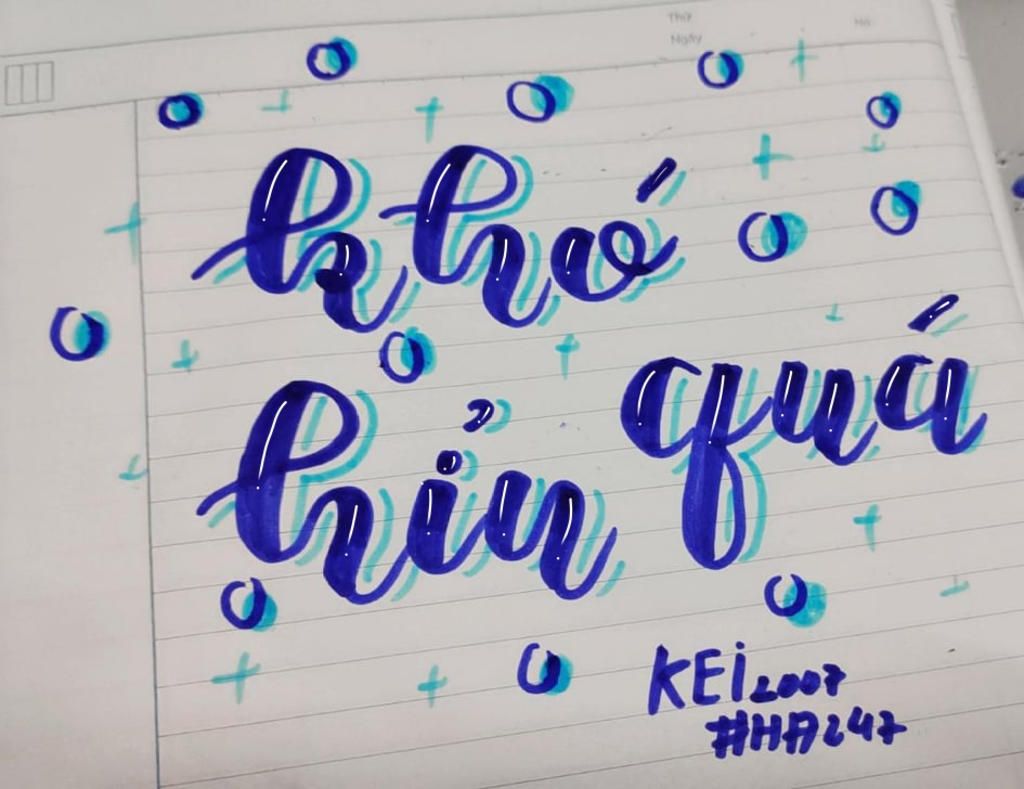 Thứ No
Ngày
khó
hỉu quá
KEI2007
#HA247